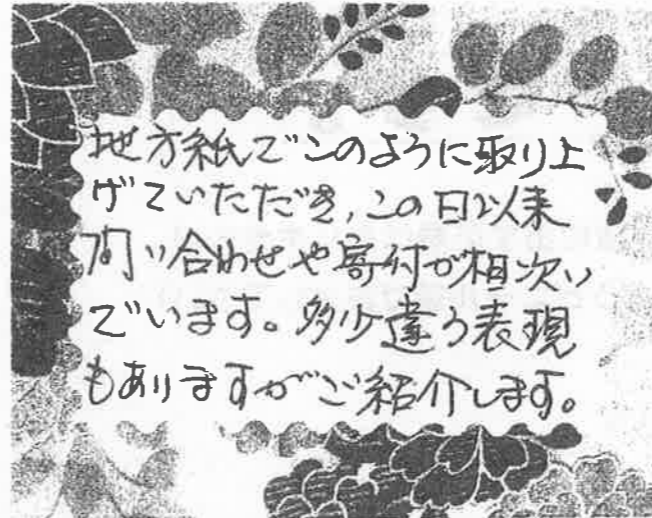 地方紙でこのように取り上
げていただき,この日以来
問い合わせや寄付が相次い
でいます。多少違う表現
もありますがご紹介します。